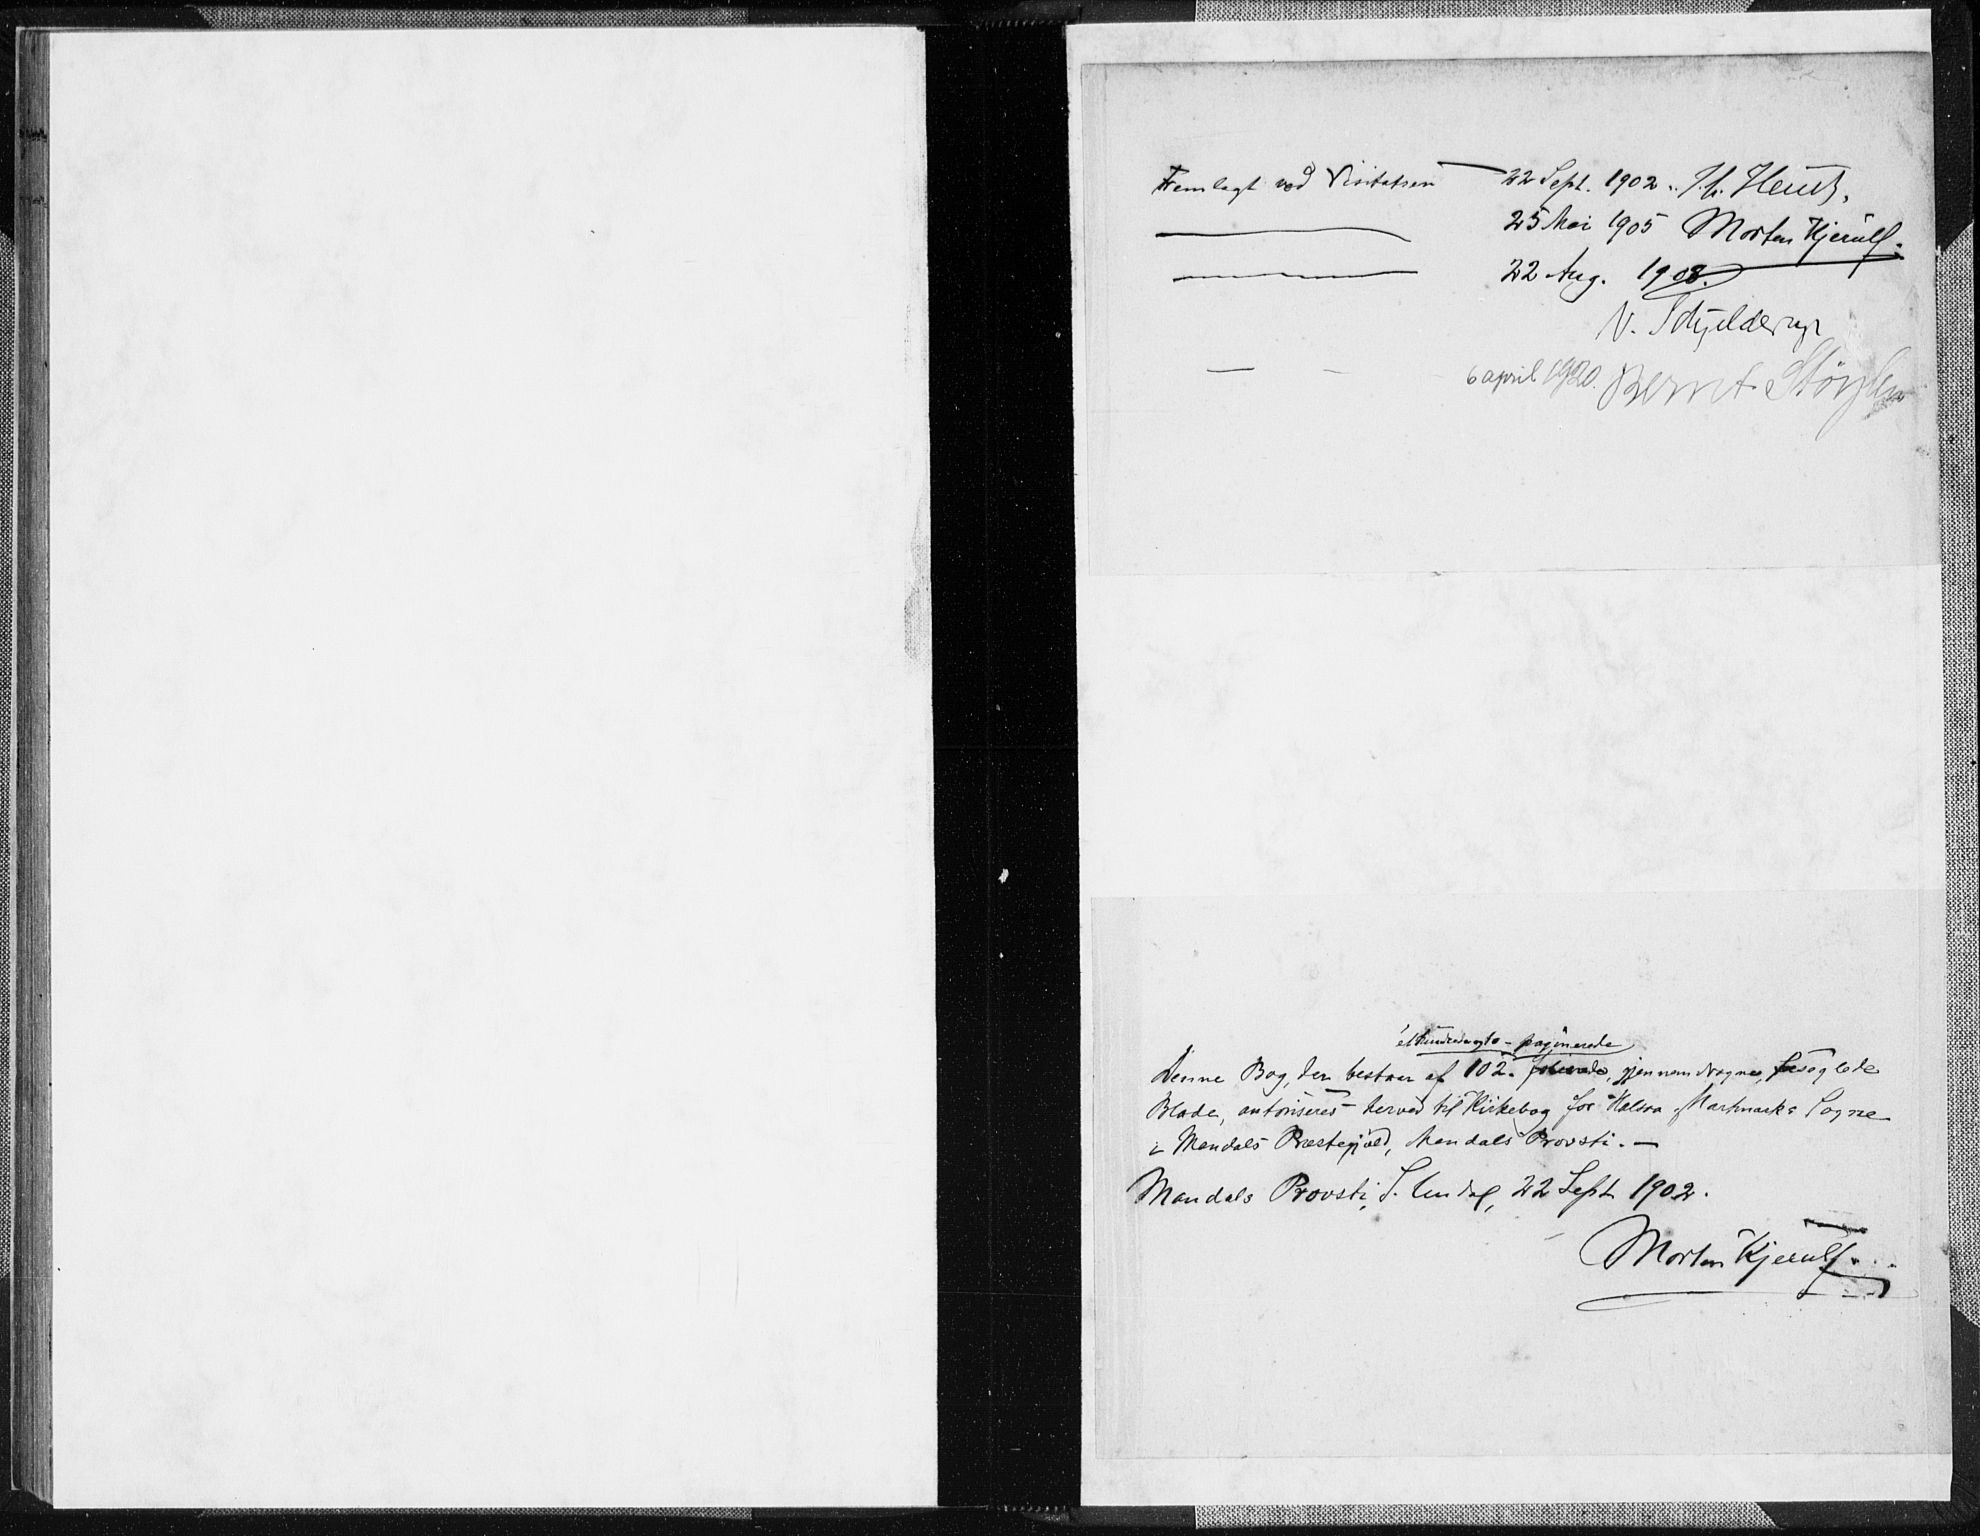 Fremlagt ved Visitatsen — 22 Sept. 1902. J. C. Heuch.
— 25 Mai 1905 Morten Kjerulf.
— 22 Aug. 1908.
V. Schjelderup
— 6 april 1920. Bernt Støylen
ethundredeogto - paginerede
Denne Bog, der bestaar af 102. folierede, gjennemdragne, forseglede
Blade, autoriseres herved til Kirkebog for Halsaa Hartmarks Sogne
i Mandals Præstegjæld, Mandals Provsti. —
Mandals Provsti, S. Undal, 22 Sept 1902.
Morten Kjerulf.